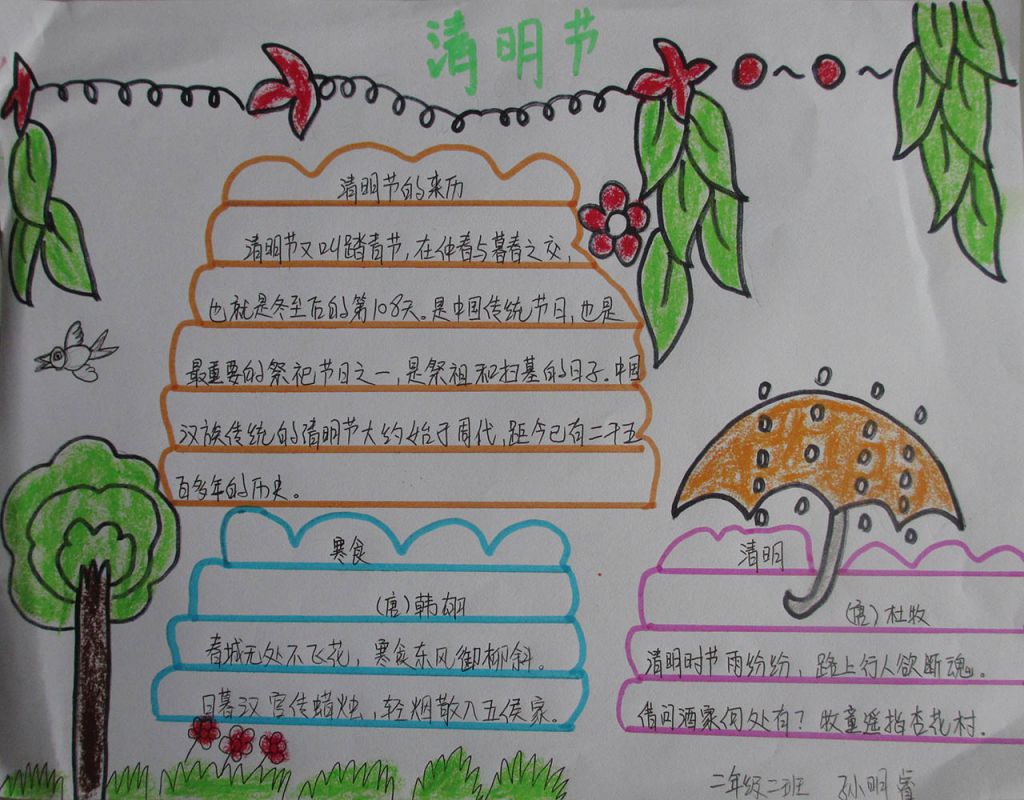 清明节
清明节的来历
清明节又叫踏青节,在仲春与暮春之交,
也就是冬至后的第108天。是中国传统节日,也是
最重要的祭祀节日之一,是祭祖和扫墓的日子。中国
汉族传统的清明节大约始于周代,距今已有二千五
百多年的历史。
寒食
(唐)韩翃
春城无处不飞花,寒食东风御柳斜。
日暮汉宫传蜡烛,轻烟散入五侯家。
清明
(唐)杜牧
清明时节雨纷纷,路上行人欲断魂。
借问酒家何处有?牧童遥指杏花村.
二年级二班 孙明睿